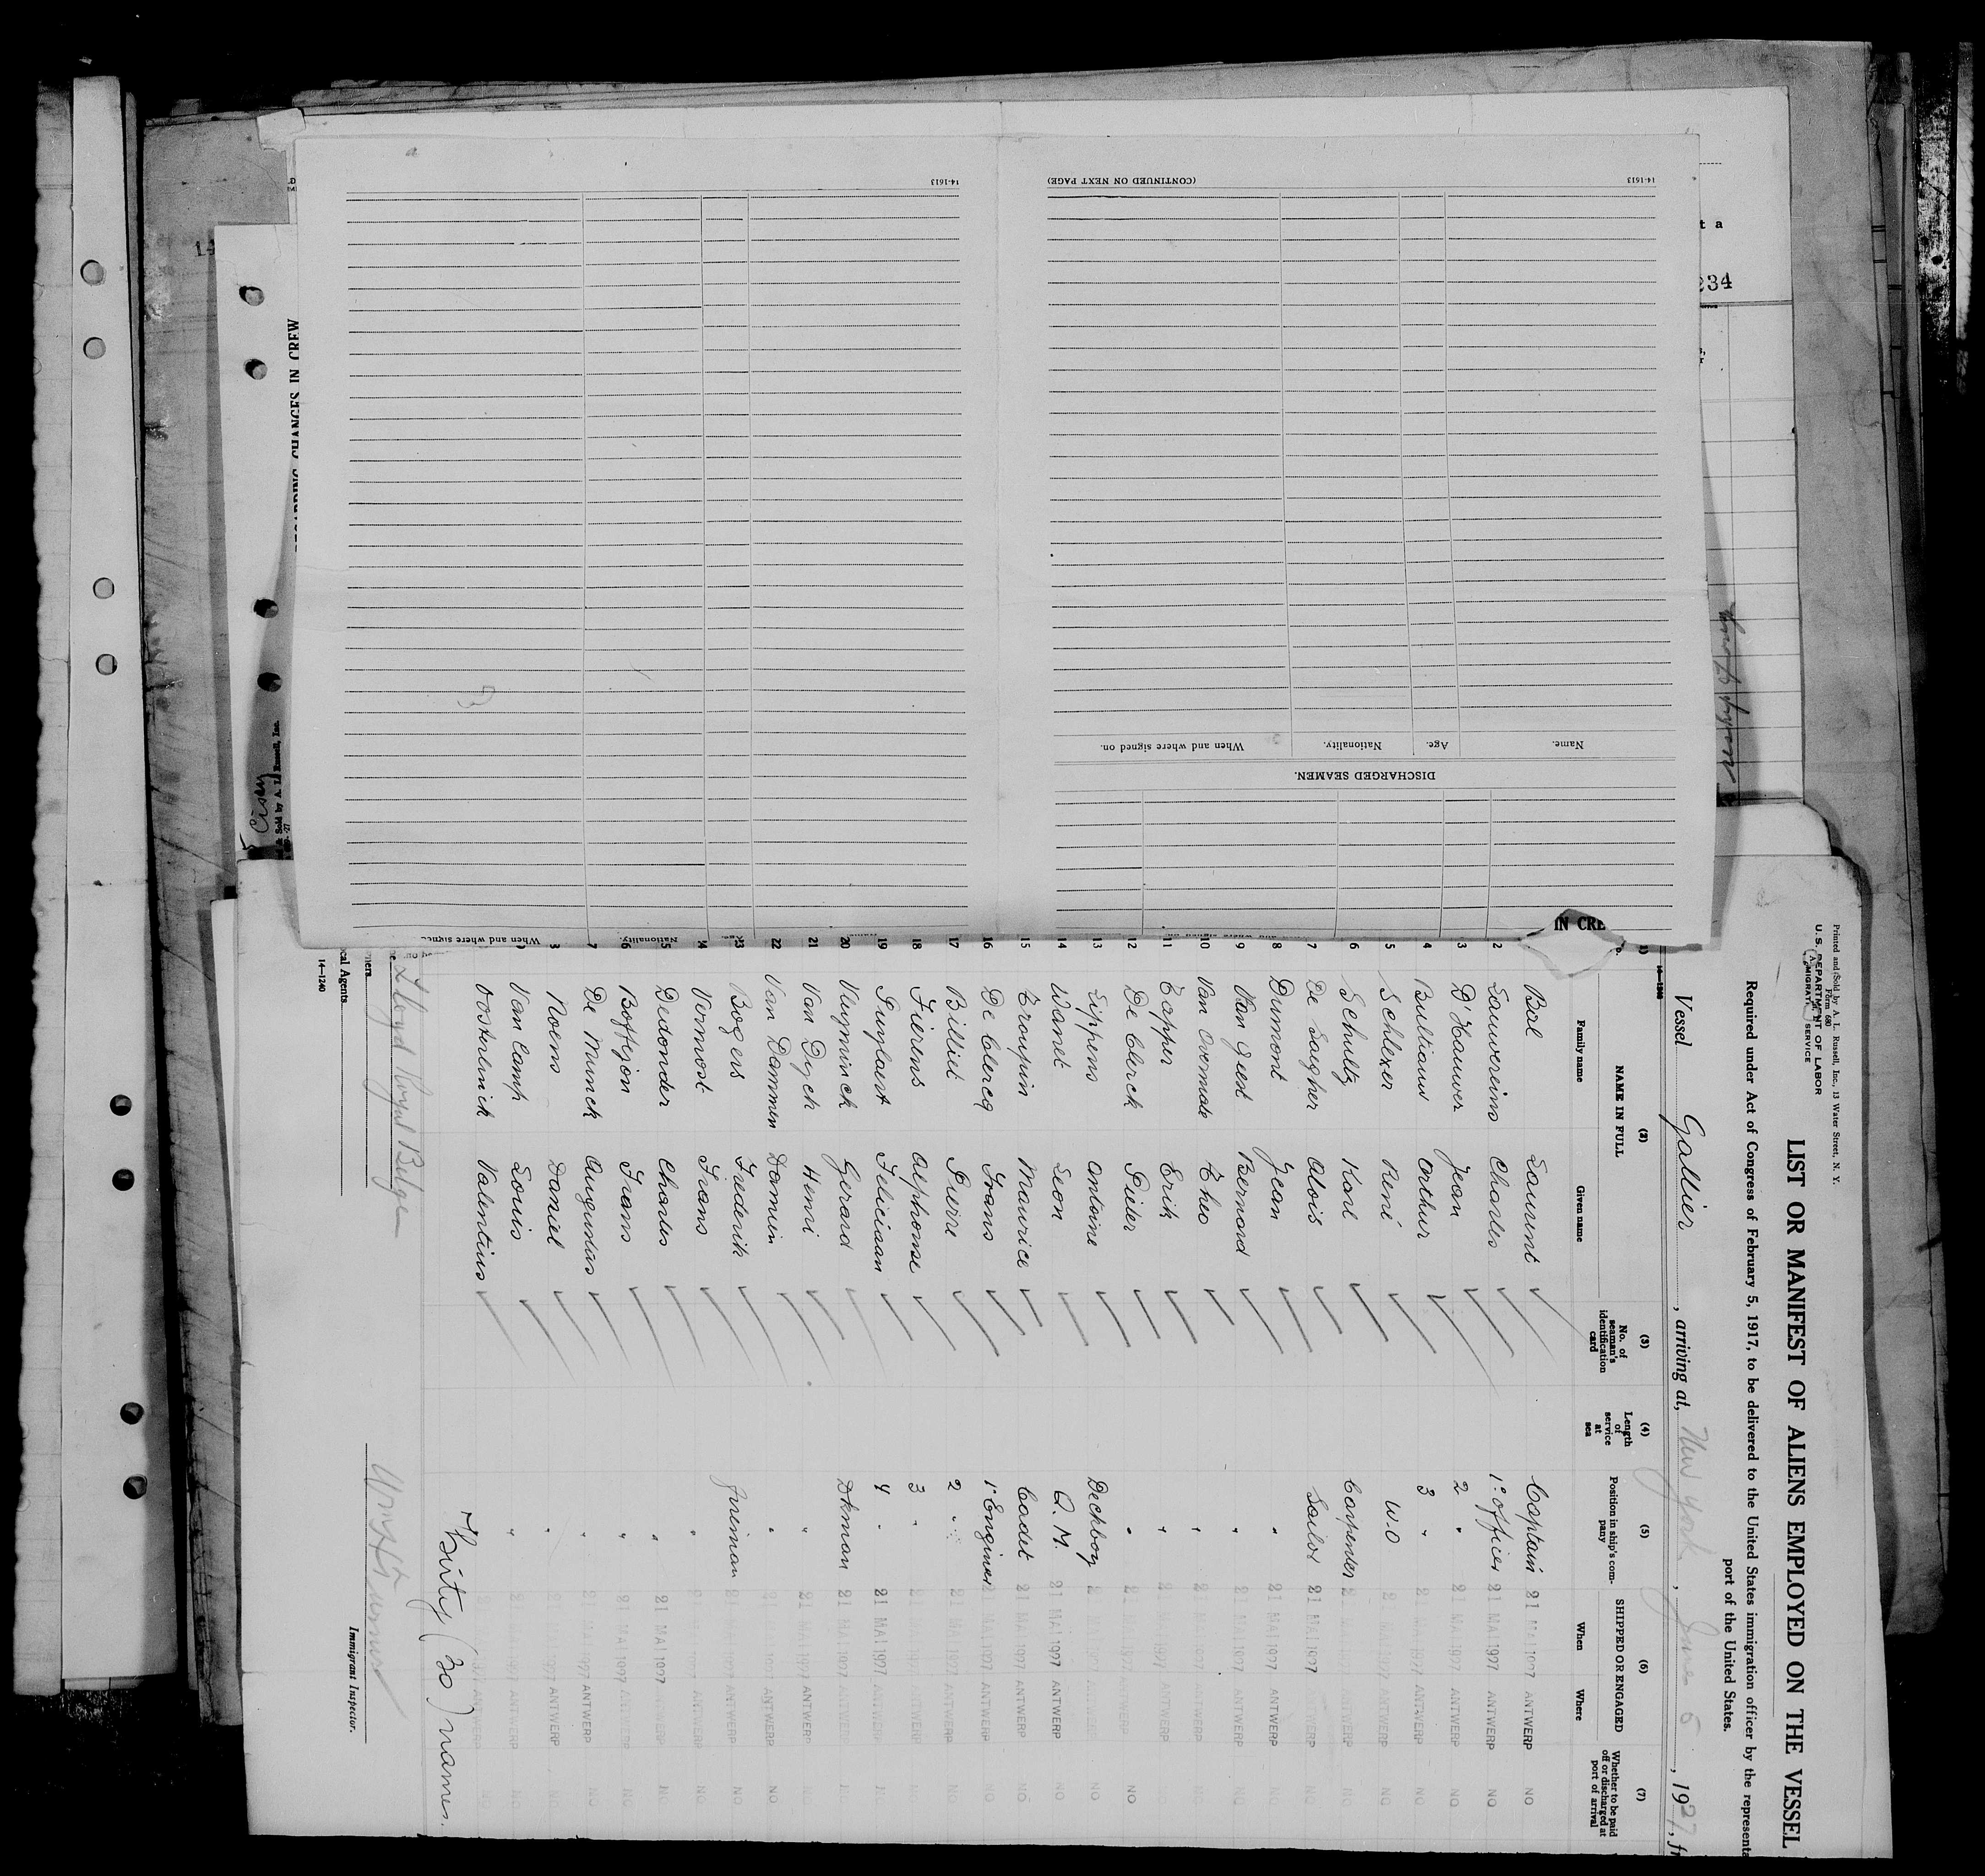 Printed and Sold by A. L. Russell, Inc., 13 Water Street, N. Y.
Form 680
U.S. DEPARTMENT OF LABOR
IMMIGRATION SERVICE
LIST OR MANIFEST OF ALIENS EMPLOYED ON THE VESSEL
Required under Act of Congress of February 5, 1917, to be delivered to the United States immigration officer by the representa
port of the United States.
Vessel Gallier, arriving at, New York, June 5, 1927, fr
14-1240
(2) (3) (4) (5) (6) (7)
NAME IN FULL No. of seaman's identification card Length of service at sea Position in ship's company SHIPPED OR ENGAGED Whether to be paid off or discharged at port of arrival
Family name Given name When Where
Bal Laurent Captain 21 MAI 1927 ANTWERP NO
2 Lauwereins Charles 1° officer 21 MAI 1927 ANTWERP NO
3 D'Hauwer Jean 2 " 21 MAI 1927 ANTWERP NO
4 Bultiauw Arthur 3 " 21 MAI 1927 ANTWERP NO
5 Schlexer René W.O 21 MAI 1927 ANTWERP NO
6 Schultz Karl Carpenter 21 ANTWERP NO
7 De Saegher Alois Sailor 21 MAI 1927
8 Dumont Jean " 21 MAI 1927 ANTWERP NO
9 Van Geest Bernard " 21 MAI 1927 ANTWERP NO
10 Van Overmate Theo " 21 1927 ANTWERP NO
11 Tapper Erik " 21 1927 ANTWERP
12 De Clerck Pieter " 21 MAI 1927 ANTWERP NO
13 Lippens Antoine Deckboy 21 ANTWERP NO
14 Wanet Leon Q. M. 21 MAI 1927 ANTWERP NO
15 Troupin Maurice Cadet 21 MAI 1927 ANTWERP NO
16 De Clercq Frans 1° Enginer 21 MAI 1927 ANTWERP NO
17 Billiet Pierre 2 " 21 MAI 1927 ANTWERP NO
18 Fierens Alphonse 3 " 21 ANTWERP
19 Puylaert Feliciaan 4 " 21 MAI 1927 ANTWERP NO
20 Vluyminck Gerard Dkman 21 MAI 1927 ANTWERP
21 Van Dyck Henri " 21 MAI 1927 ANTWERP NO
22 Van Dammen Damien " 21 MAI 1927 ANTWERP NO
23 Bogers Frederik Fireman 21 MAI 1927 ANTWERP NO
24 Vermost Frans " 21 MAI 1927 ANTWERP NO
5 Dedonder Charles " 21 MAI 1927 ANTWERP NO
6 Boffejon Frans " 21 MAI 1927 ANTWERP NO
7 De Munck Augustus " 21 MAI 1927 ANTWERP NO
8 Noens Daniel " 21 MAI 1927 ANTWERP NO
Van Camp Louis " 21 MAI 1927 ANTWERP NO
Oosterlinck Valentius " 21 MAI 1927 ANTWERP NO
Thirty (30) names.
Lloyd Royal Belge
ners.
cal Agents
14-1240
Immigrant Inspector.
IN CRE
DISCHARGED SEAMEN.
Name. Age. Nationality. When and where signed on.
14-1613 (CONTINUED ON NEXT PAGE)
14-1613
Nationality. When and where signed
CHANGES IN CREW
Sold by A. L. Russell, Inc.
t a
234
14